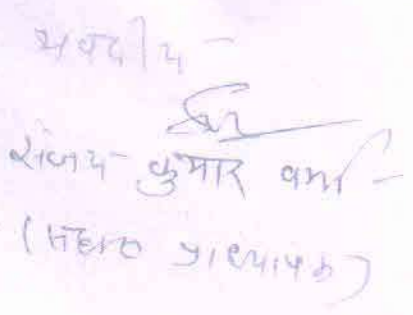 भवदीय -
संजय कुमार वर्मा -
(सहा० प्राध्यापक)